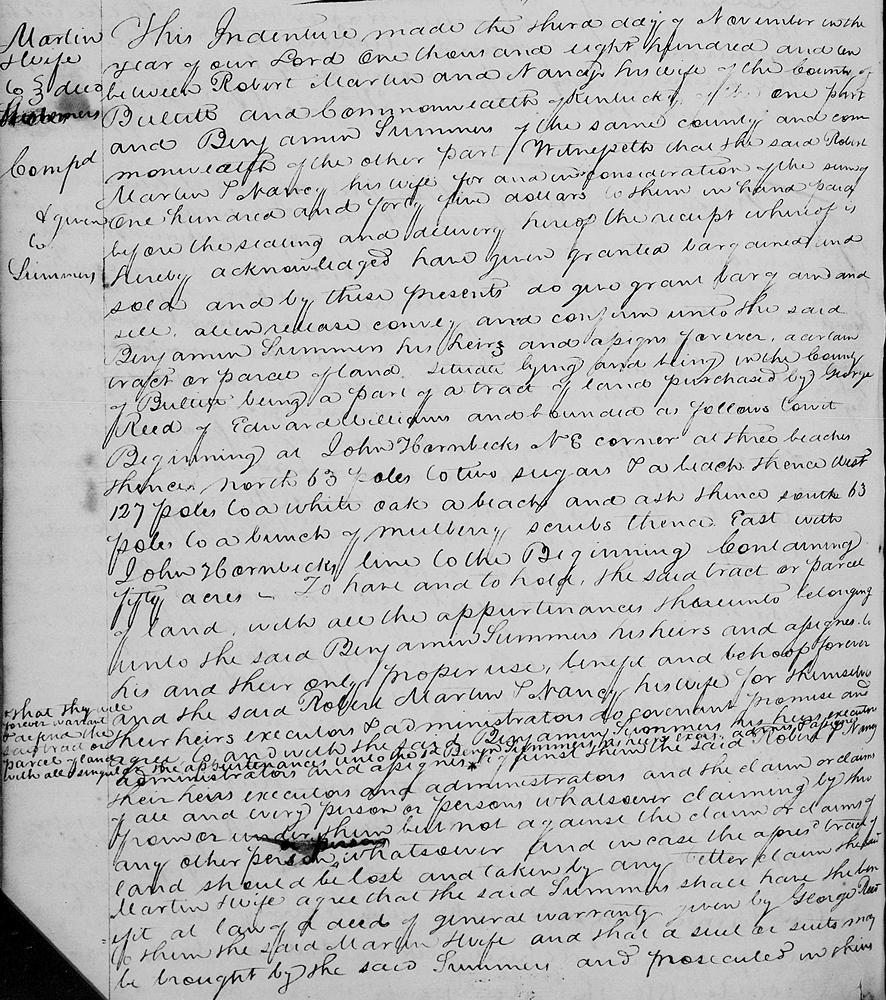 Martin
& wife
to } deed
Summers
Compd
& given
to
Summers
This Indenture made the third day of November in the
year of our Lord One thousand eight hundred and ten
between Robert Martin and Nancy his wife of the County of
Bullitt and Commonwealth of Kentucky of the one part
and Benjamin Summers of the same county and com
monwealth of the other part Witnesseth that the said Robert
Martin & Nancy his wife for and in consideration of the sum of
One hundred and forty five dollars to them in hand paid
before the sealing and delivery hereof the receipt whereof is
hereby acknowledged have given granted bargained and
sold and by these presents do give grant bargain and
sell, alien release convey and confirm unto the said
Benjamin Summers his heirs and assigns forever, a certain
tract or parcel of land, situate lying and being in the County
of Bullitt being a part of a tract of land purchased by George
Reed of Edward Williams and bounded as follows towit
Beginning at John Hornbecks N E corner at three beaches
thence north 63 poles to two sugars & a beach thence West
127 poles to a white oak a beach and ash thence south 63
poles to a bunch of mulberry scrubs thence East with
John Hornbecks line to the Beginning Containing
fifty acres - To have and to hold, the said tract or parcel
of land, with all the appurtinances thereunto belonging
unto the said Benjamin Summers his heirs and assignes to
his and their only proper use, benefit and behoof forever
and the said Robert Martin & Nancy his wife for themselves
their heirs executors & administrators do covenant promise and
agree to and with the said Benjamin Summers his heirs executors
administrators and assignes * against them the said Robert & Nancy
that they will
forever warrant
& defend the
said tract or
parcel of land
with all & singular the appurtenances unto the sd Benjn Summers his heirs exors. adms. & assigns
their heirs executors and administrators and the claim or claims
of all and every person or persons whatsoever claiming by thro
from or under them but not against the claim or claims of
any other person whatsoever and in case the afores tract of
land should be lost and taken by any better claim the said
Martin & wife agree that the said Summers shall have the ben
efit at law of a deed of general warranty given by George Reed
to them the said Martin & wife and that a suit or suits may
be brought by the said Summers and prosecuted in their